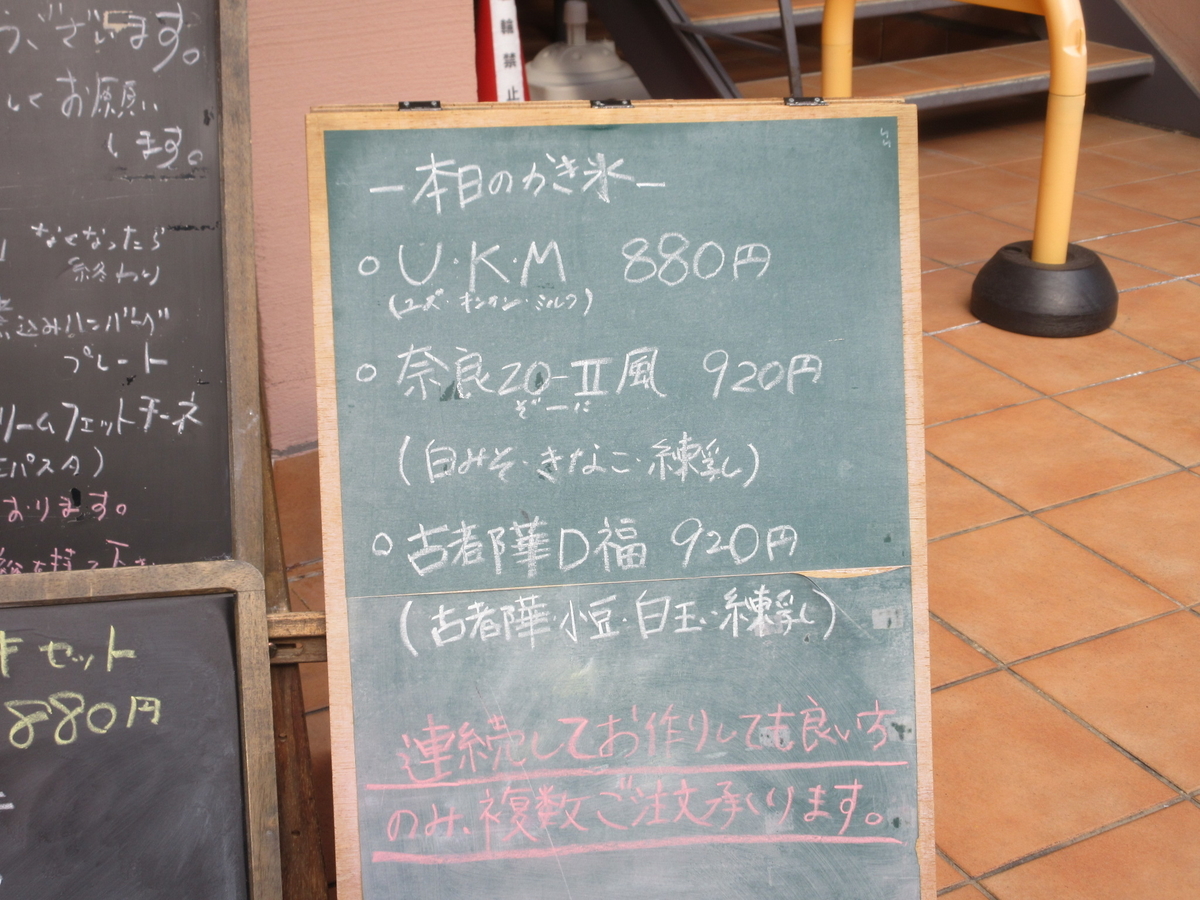 う、ございます。
しくお願い
します。
なくなったら
終わり
煮込みハンバーグ
プレート
リームフェットチーネ
パスタ)
おります。
セット
880円
輪禁止
ー本日のかき氷ー
○U・K・M 880円
(ユズ・キンカン・ミルク)
○奈良20-Ⅱ風 920円
ぞーに
(白みそ・きなこ・練乳)
○古都華D福 920円
(古都華・小豆・白玉・練乳)
連続してお作りしても良い方
のみ、複数ご注文承ります。